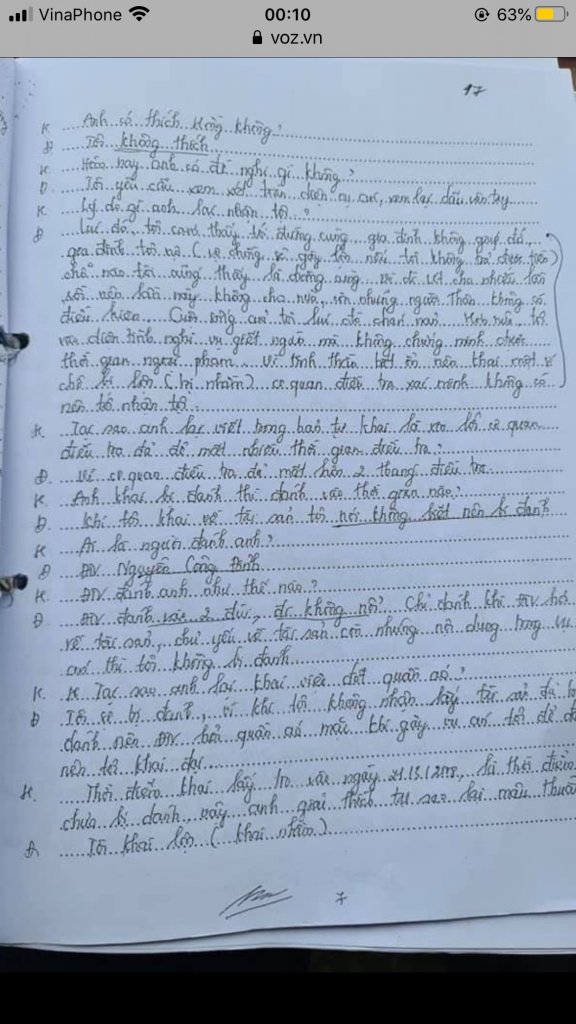 VinaPhone 00:10 63%
voz.vn
17
K Anh có thích Hồng không?
Đ Tôi không thích
K Hôm nay anh có đề nghị gì không?
Đ Tôi yêu cầu xem xét toàn diện vụ án, xem lại dấu vân tay
K Lý do gì anh lại nhận tội?
Đ Lúc đó, tôi cảm thấy tôi đường cùng, gia đình không giúp đỡ,
gia đình tôi nó
chế nào tôi cũng thấy là đường cùng vì đi vứt cha nhiều lần
rồi nên lần này không cha nữa, còn những người thân không có
điều kiện. Cuộc sống của tôi lúc đó chán nản. Hơn nữa, tôi
vào diện tình nghi vụ giết người mà không chứng minh được
thời gian ngoại phạm. Vì tinh thần bất ổn nên khai một vì
chỗ bị lộn (bị nhầm) cơ quan điều tra xác minh không có
nên tôi nhận tội.
K Tại sao anh lại viết trong bản tự khai là xin lỗi cơ quan
điều tra đã để mất nhiều thời gian điều tra?
Đ Vì cơ quan điều tra đã mất hơn 2 tháng điều tra
K Anh khai bị đánh thì đánh vào thời gian nào?
Đ Khi tôi khai về tài sản tôi nói không biết nên bị đánh
K Ai là người đánh anh?
Đ ĐTV Nguyễn Công Định
K ĐTV đánh anh như thế nào?
Đ ĐTV đánh vào 2 đùi, đi không nổi. Chỉ đánh khi ĐTV hỏ
về tài sản, chủ yếu về tài sản còn những nội dung trong vụ
án thì tôi không bị đánh
K K Tại sao anh lại khai việc đốt quần áo?
Đ Tôi sợ bị đánh, vì khi tôi không nhận lấy tài sản đã
đánh nên ĐTV hỏi quần áo mặc khi gây vụ án tôi
nên tôi khai đại
K Thời điểm khai lấy ra vào ngày là thời điểm
chưa bị đánh, vậy anh giải thích tại sao lại mâu thuẫ
Đ Tôi khai lộn (khai nhầm)
7